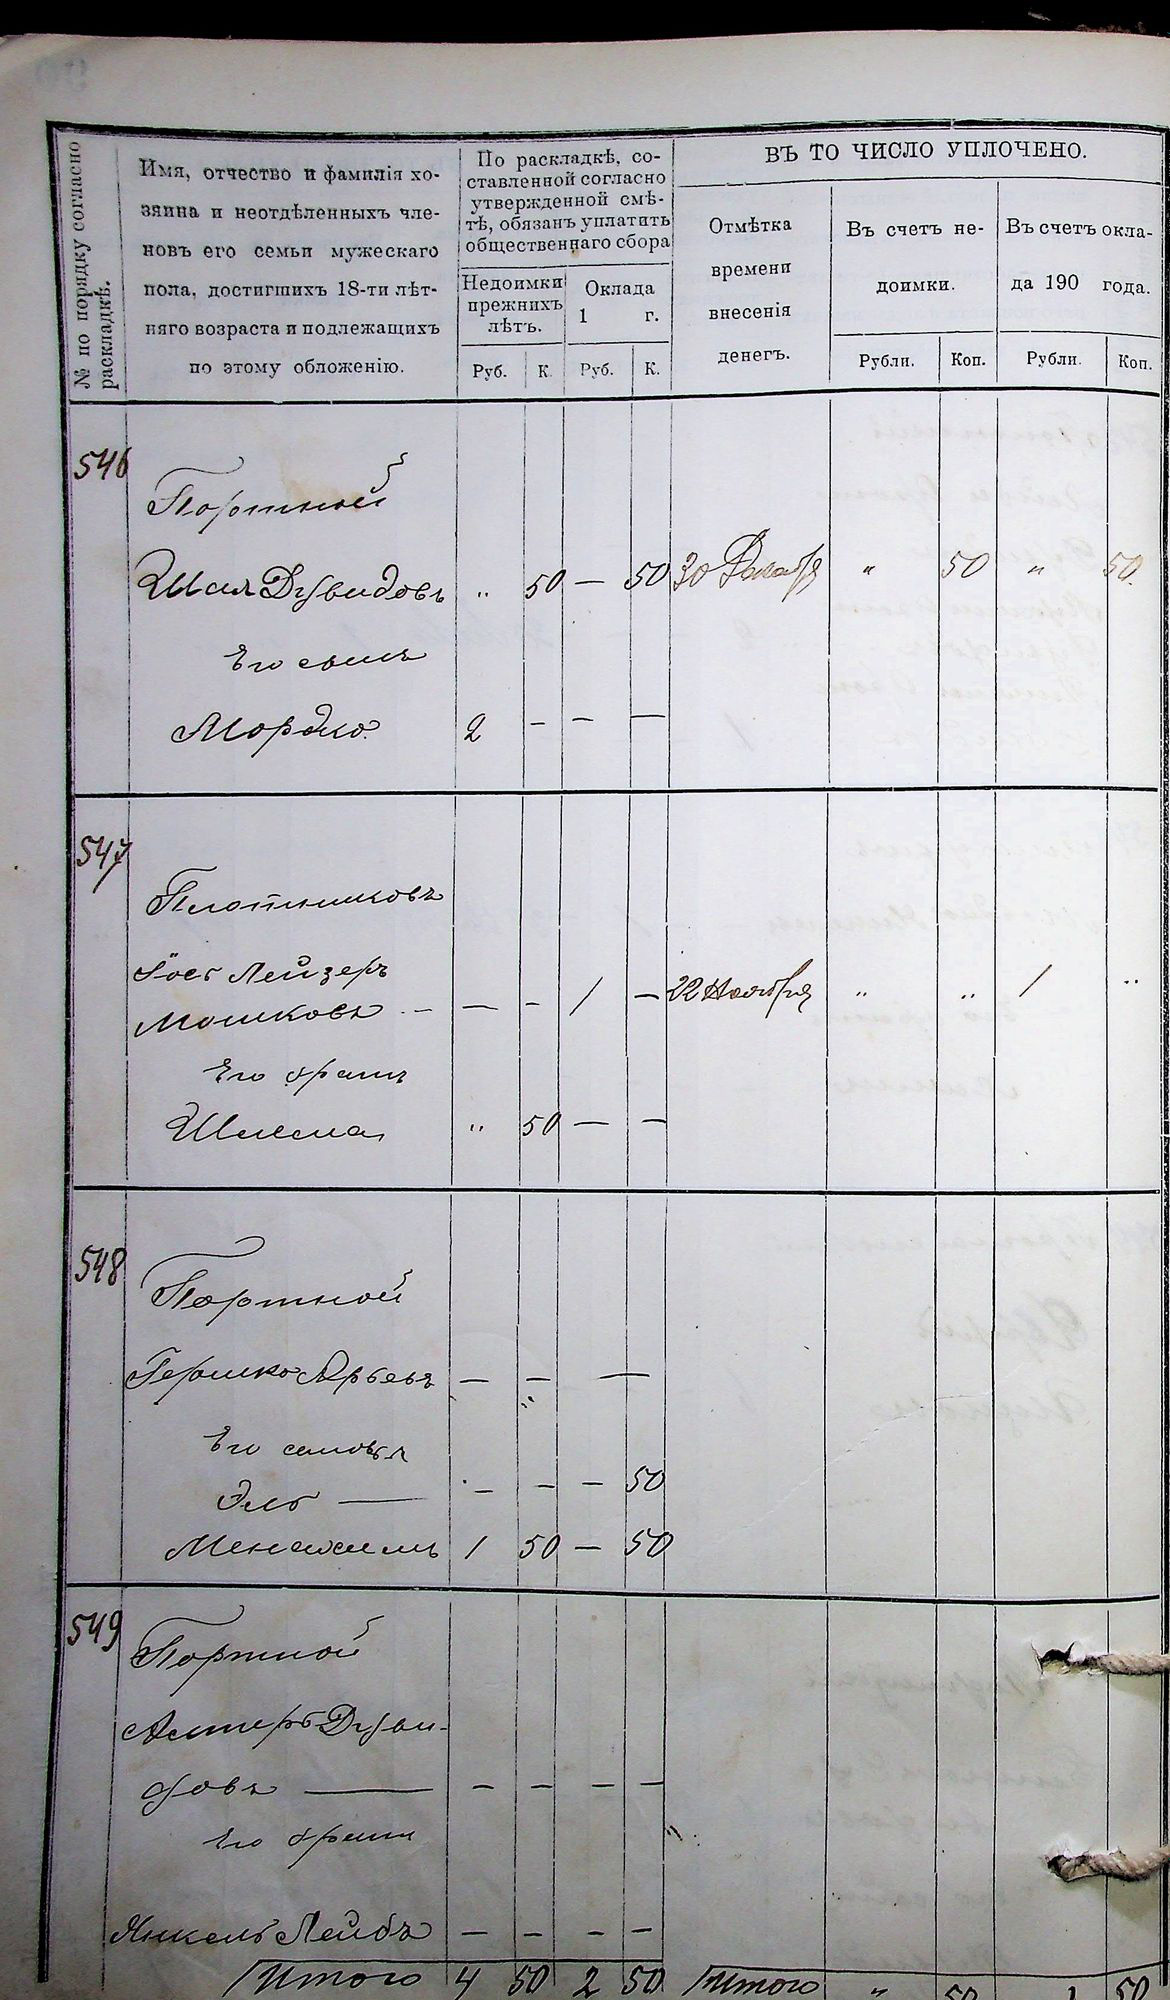 № по порядку согласно раскладкѣ.
Имя, отчество и фамилія хо-
зяина и неотдѣленныхъ чле-
новъ его семьи мужескаго
пола, достигшихъ 18-ти лѣт-
няго возраста и подлежащихъ
по этому обложенію.
По раскладкѣ, со-
ставленной согласно
утвержденной смѣ-
тѣ, обязанъ уплатить
общественнаго сбора
Недоимки
прежнихъ
лѣтъ.
Оклада
1 г.
Руб. К. Руб. К.
ВЪ ТО ЧИСЛО УПЛОЧЕНО.
Отмѣтка
времени
внесенія
денегъ.
Въ счетъ не-
доимки.
Въ счетъ окла-
да 190 года.
Рубли. Коп. Рубли. Коп.
546
Портной
Шая Дувидовъ " 50 — 50 30 Декабр " 50 " 50
Его сынъ
Мордко. 2 – – —
547
Плотниковъ
Іось Лейзеръ
Мошковъ — – 1 – 22 Ноября " " 1 "
Его братъ
Шлема " 50 — –
548
Портной
Гершко Арьевъ — – —
Его сыновья
Эль — – – – 50
Менахемъ 1 50 – 50
549
Портной
Алтеръ Дуви-
довъ — – – – –
Его братъ
Янкель Лейбъ – – – –
Итого 4 50 2 50 Итого " 50 1 50